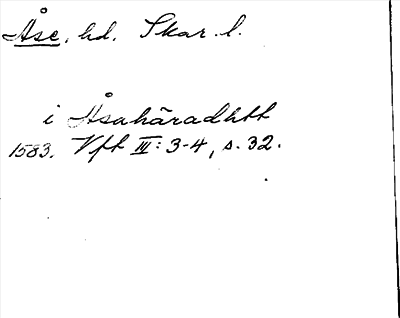 Åse, hd. Skar. l.
i Åsahäradhtt
1583. Vft III: 3-4, s. 32.